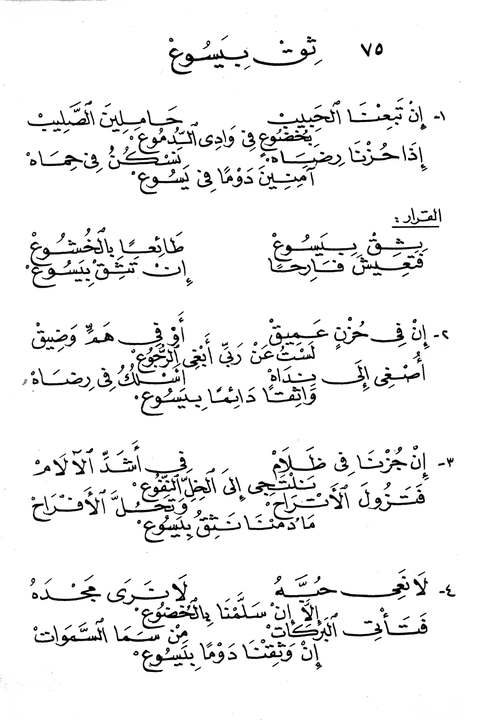 ٧٥ ثِقْ بِيَسُوعْ
١- إِنْ تَبِعْنَا الْحَبِيبْ حَامِلِينَ الصَّلِيبْ
بِخُضُوعٍ فِي وَادِي الدُّمُوعْ
إِذَا حُزْنَا رِضَاهْ نَسْكُنُ فِي حِمَاهْ
آمِنِينَ دَوْمًا فِي يَسُوعْ
القرار:
ثِقْ بِيَسُوعْ طَائِعًا بِالْخُشُوعْ
فَتَعِيشَ فَارِحًا إِنْ تَثِقْ بِيَسُوعْ
٢- إِنْ فِي حُزْنٍ عَمِيقْ أَوْ فِي هَمٍّ وَضِيقْ
لَسْتُ عَنْ رَبِّي أَبْغِي الرُّجُوعْ
أُصْغِي إِلَى نِدَاهْ أَسْلُكُ فِي رِضَاهْ
وَاثِقًا دَائِمًا بِيَسُوعْ
٣- إِنْ جُزْنَا فِي ظَلَامْ فِي أَشَدِّ الْآلَامْ
نَلْتَجِي إِلَى الْخِلِّ النَّفُوعْ
فَتَزُولَ الْأَتْرَاحْ وَتَحُلَّ الْأَفْرَاحْ
مَا دُمْنَا نَثِقُ بِيَسُوعْ
٤- لَا نَعِي حُبَّهُ لَا نَرَى مَجْدَهُ
إِلَّا إِنْ سَلَّمْنَا بِالْخُضُوعْ
فَتَأْتِي الْبَرَكَاتْ مِنْ سَمَا السَّمَوَاتْ
إِنْ وَثِقْنَا دَوْمًا بِيَسُوعْ